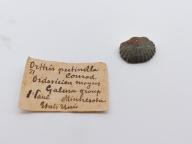 Orthis pectinella
Conrad
Ordovicien moyen
Galena group
Minnesota
Etats Unis